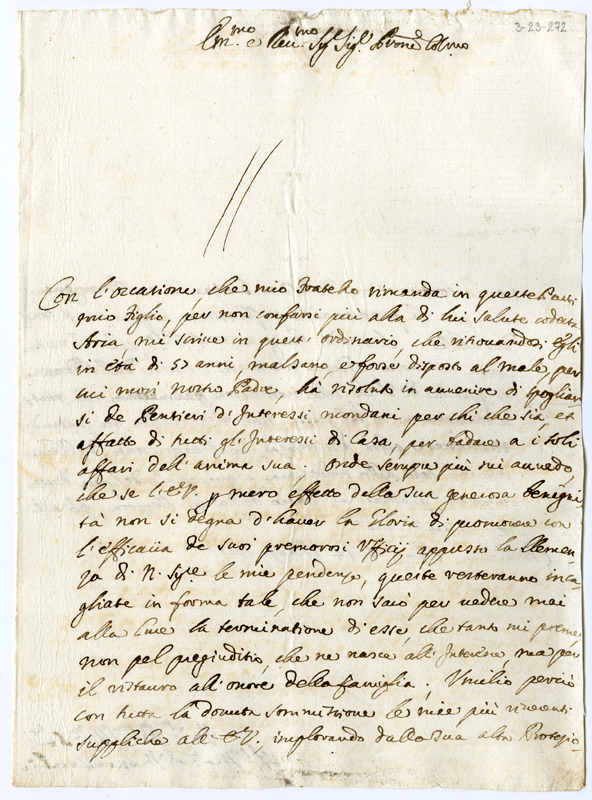 3-23-272
Em.mo e Reu.mo Sig.r Sig.r Pron.e Col.mo
Con l'occasione, che mio Fratello rimanda in queste Parti
mio figlio, per non confarsi più alla di lui salute codesta
Aria mi scriue in quest'ordinario, che ritrouandosi Egli
in età di 57 anni, malsano, e forse disposto al male, per
cui morì nostro Padre, hà risoluto in auuenire di spogliar
si de Pensieri d'Interessi mondani per chi che sia, et
affatto di tutti gl'Interessi di Casa, per badare a i soli
affari dell'anima sua. Onde sempre più mi auuedo
che se l'E.V. p mero effetto della sua generosa benigni
tà non si degna d'hauer la Gloria di promouere con
l'efficacia de suoi premurosi Vfficij appresso la Clemen
za di N. Sig.re le mie pendenze, queste resteranno inca-
gliate in forma tale, che non sarò per uedere mai
alla luce la terminatione di esse, che tanto mi preme
non pel pregiuditio, che ne nasce all'Interesse, ma per
il ristauro all'onore della famiglia. Vmilio perciò
con tutta la douuta sommissione le mie più riuerenti
suppliche all'E.V. implorando dalla sua alta Protezio